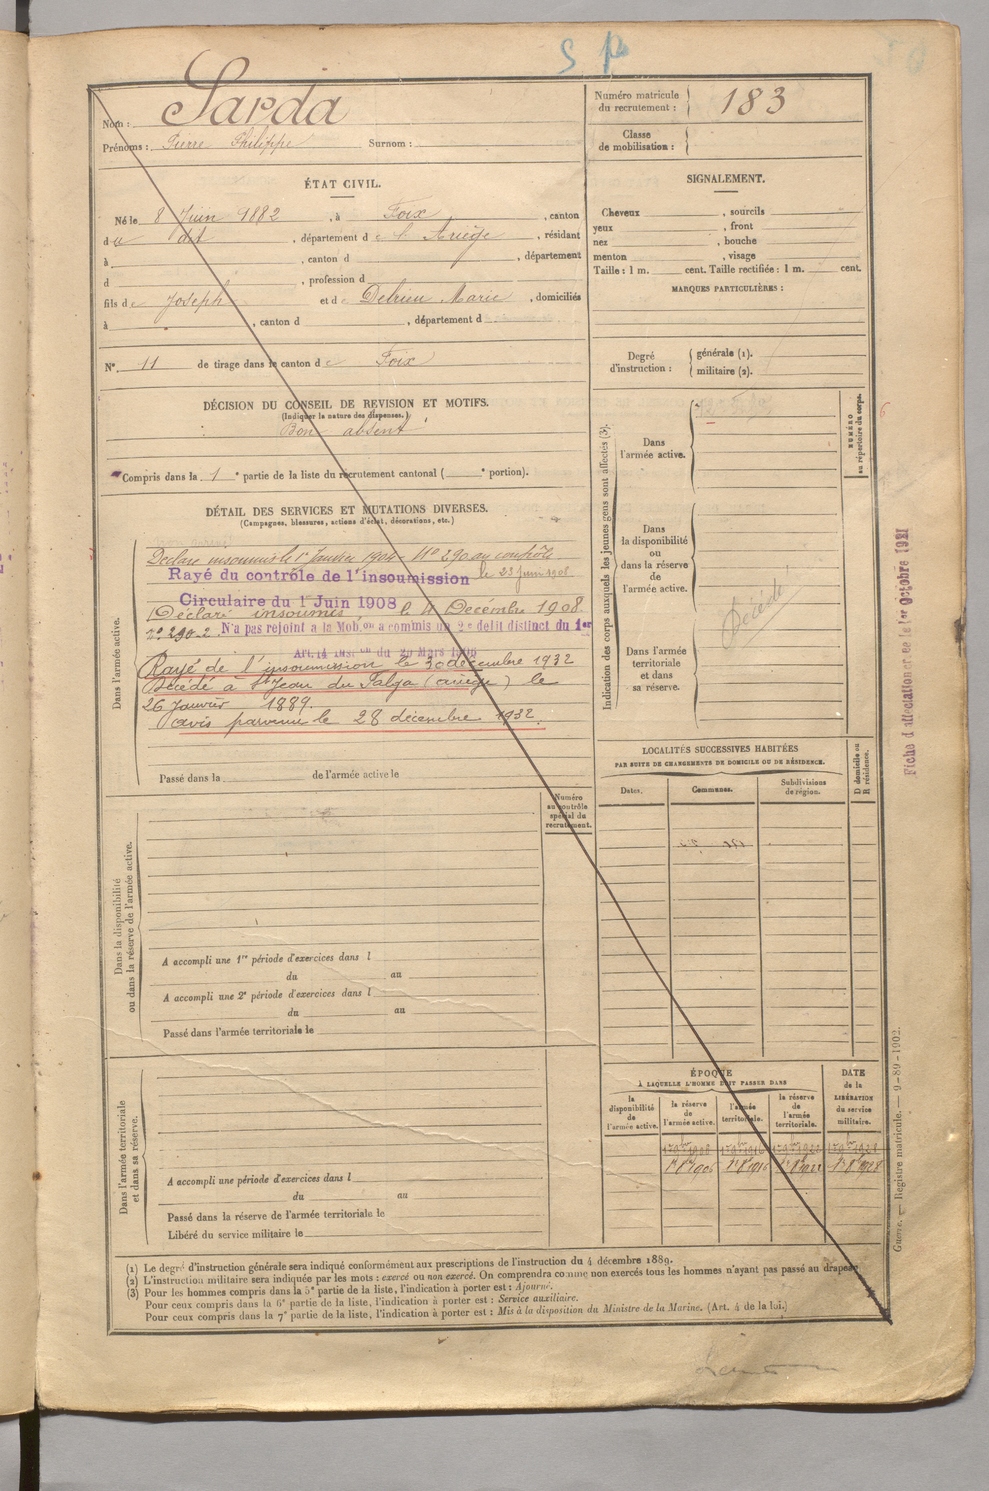 S P
Nom : Sarda
Prénoms : Pierre Philippe Surnom :
Numéro matricule du recrutement : 183
Classe de mobilisation :
ÉTAT CIVIL.
Né le 8 Juin 1882, à Foix, canton
du dit, département de l'Ariège, résidant
à , canton d , département
d , profession d
fils de Joseph et de Delrieu Marie, domiciliés
à , canton d , département d
N° 11 de tirage dans le canton de Foix
SIGNALEMENT.
Cheveux , sourcils
yeux , front
nez , bouche
menton , visage
Taille : 1 m. cent. Taille rectifiée : 1 m. cent.
MARQUES PARTICULIÈRES :
Degré d'instruction : générale (1).
militaire (2).
DÉCISION DU CONSEIL DE REVISION ET MOTIFS.
(Indiquer la nature des dispenses.)
Bon absent
Compris dans la 1e partie de la liste du recrutement cantonal ( e portion).
DÉTAIL DES SERVICES ET MUTATIONS DIVERSES.
(Campagnes, blessures, actions d'éclat, décorations, etc.)
Dans l'armée active.
Déclaré insoumis le 1er Janvier 1904 N° 290 au contrôle
Rayé du contrôle de l'insoumission le 23 juin 1908
Circulaire du 1er Juin 1908
Déclaré insoumis, le 4 Décembre 1908.
n° 290-2 N'a pas rejoint à la Mob. ou a commis un 2e délit distinct du 1er
Art. 14 Inst on du 20 Mars 1906
Rayé de l'insoumission le 30 décembre 1932
Décédé à St Jean du Falga (ariège) le
26 Janvier 1889.
avis parvenu le 28 décembre 1932.
Passé dans la de l'armée active le
Numéro au contrôle spécial du recrutement.
Dans la disponibilité ou dans la réserve de l'armée active.
A accompli une 1re période d'exercices dans l
du au
A accompli une 2e période d'exercices dans l
du au
Passé dans l'armée territoriale le
Dans l'armée territoriale et dans sa réserve.
A accompli une période d'exercices dans l
du au
Passé dans la réserve de l'armée territoriale le
Libéré du service militaire le
Indication des corps auxquels les jeunes gens sont affectés (3).
NUMÉRO au répertoire du corps.
Dans l'armée active.
6
Dans la disponibilité ou dans la réserve de l'armée active.
Décédé
Dans l'armée territoriale et dans sa réserve.
Fiche d'affectation le 1er Octobre 1921
LOCALITÉS SUCCESSIVES HABITÉES
PAR SUITE DE CHANGEMENTS DE DOMICILE OU DE RÉSIDENCE.
D domicile ou R résidence.
Dates. Communes. Subdivisions de région.
ÉPOQUE
À LAQUELLE L'HOMME DOIT PASSER DANS
DATE de la LIBÉRATION du service militaire.
la disponibilité de l'armée active.
la réserve de l'armée active.
l'armée territoriale.
la réserve de l'armée territoriale.
1 9bre 1906 1 9bre 1916 1 9bre 1922 1 9bre 1928
1er 8bre 1906 1er 8bre 1916 1er 8bre 1922 1er 8bre 1928
Guerre. — Registre matricule. — 9-89-1902.
(1) Le degré d'instruction générale sera indiqué conformément aux prescriptions de l'instruction du 4 décembre 1889.
(2) L'instruction militaire sera indiquée par les mots : exercé ou non exercé. On comprendra comme non exercés tous les hommes n'ayant pas passé au drapeau.
(3) Pour les hommes compris dans la 5e partie de la liste, l'indication à porter est : Ajourné.
Pour ceux compris dans la 6e partie de la liste, l'indication à porter est : Service auxiliaire.
Pour ceux compris dans la 7e partie de la liste, l'indication à porter est : Mis à la disposition du Ministre de la Marine. (Art. 4 de la loi.)